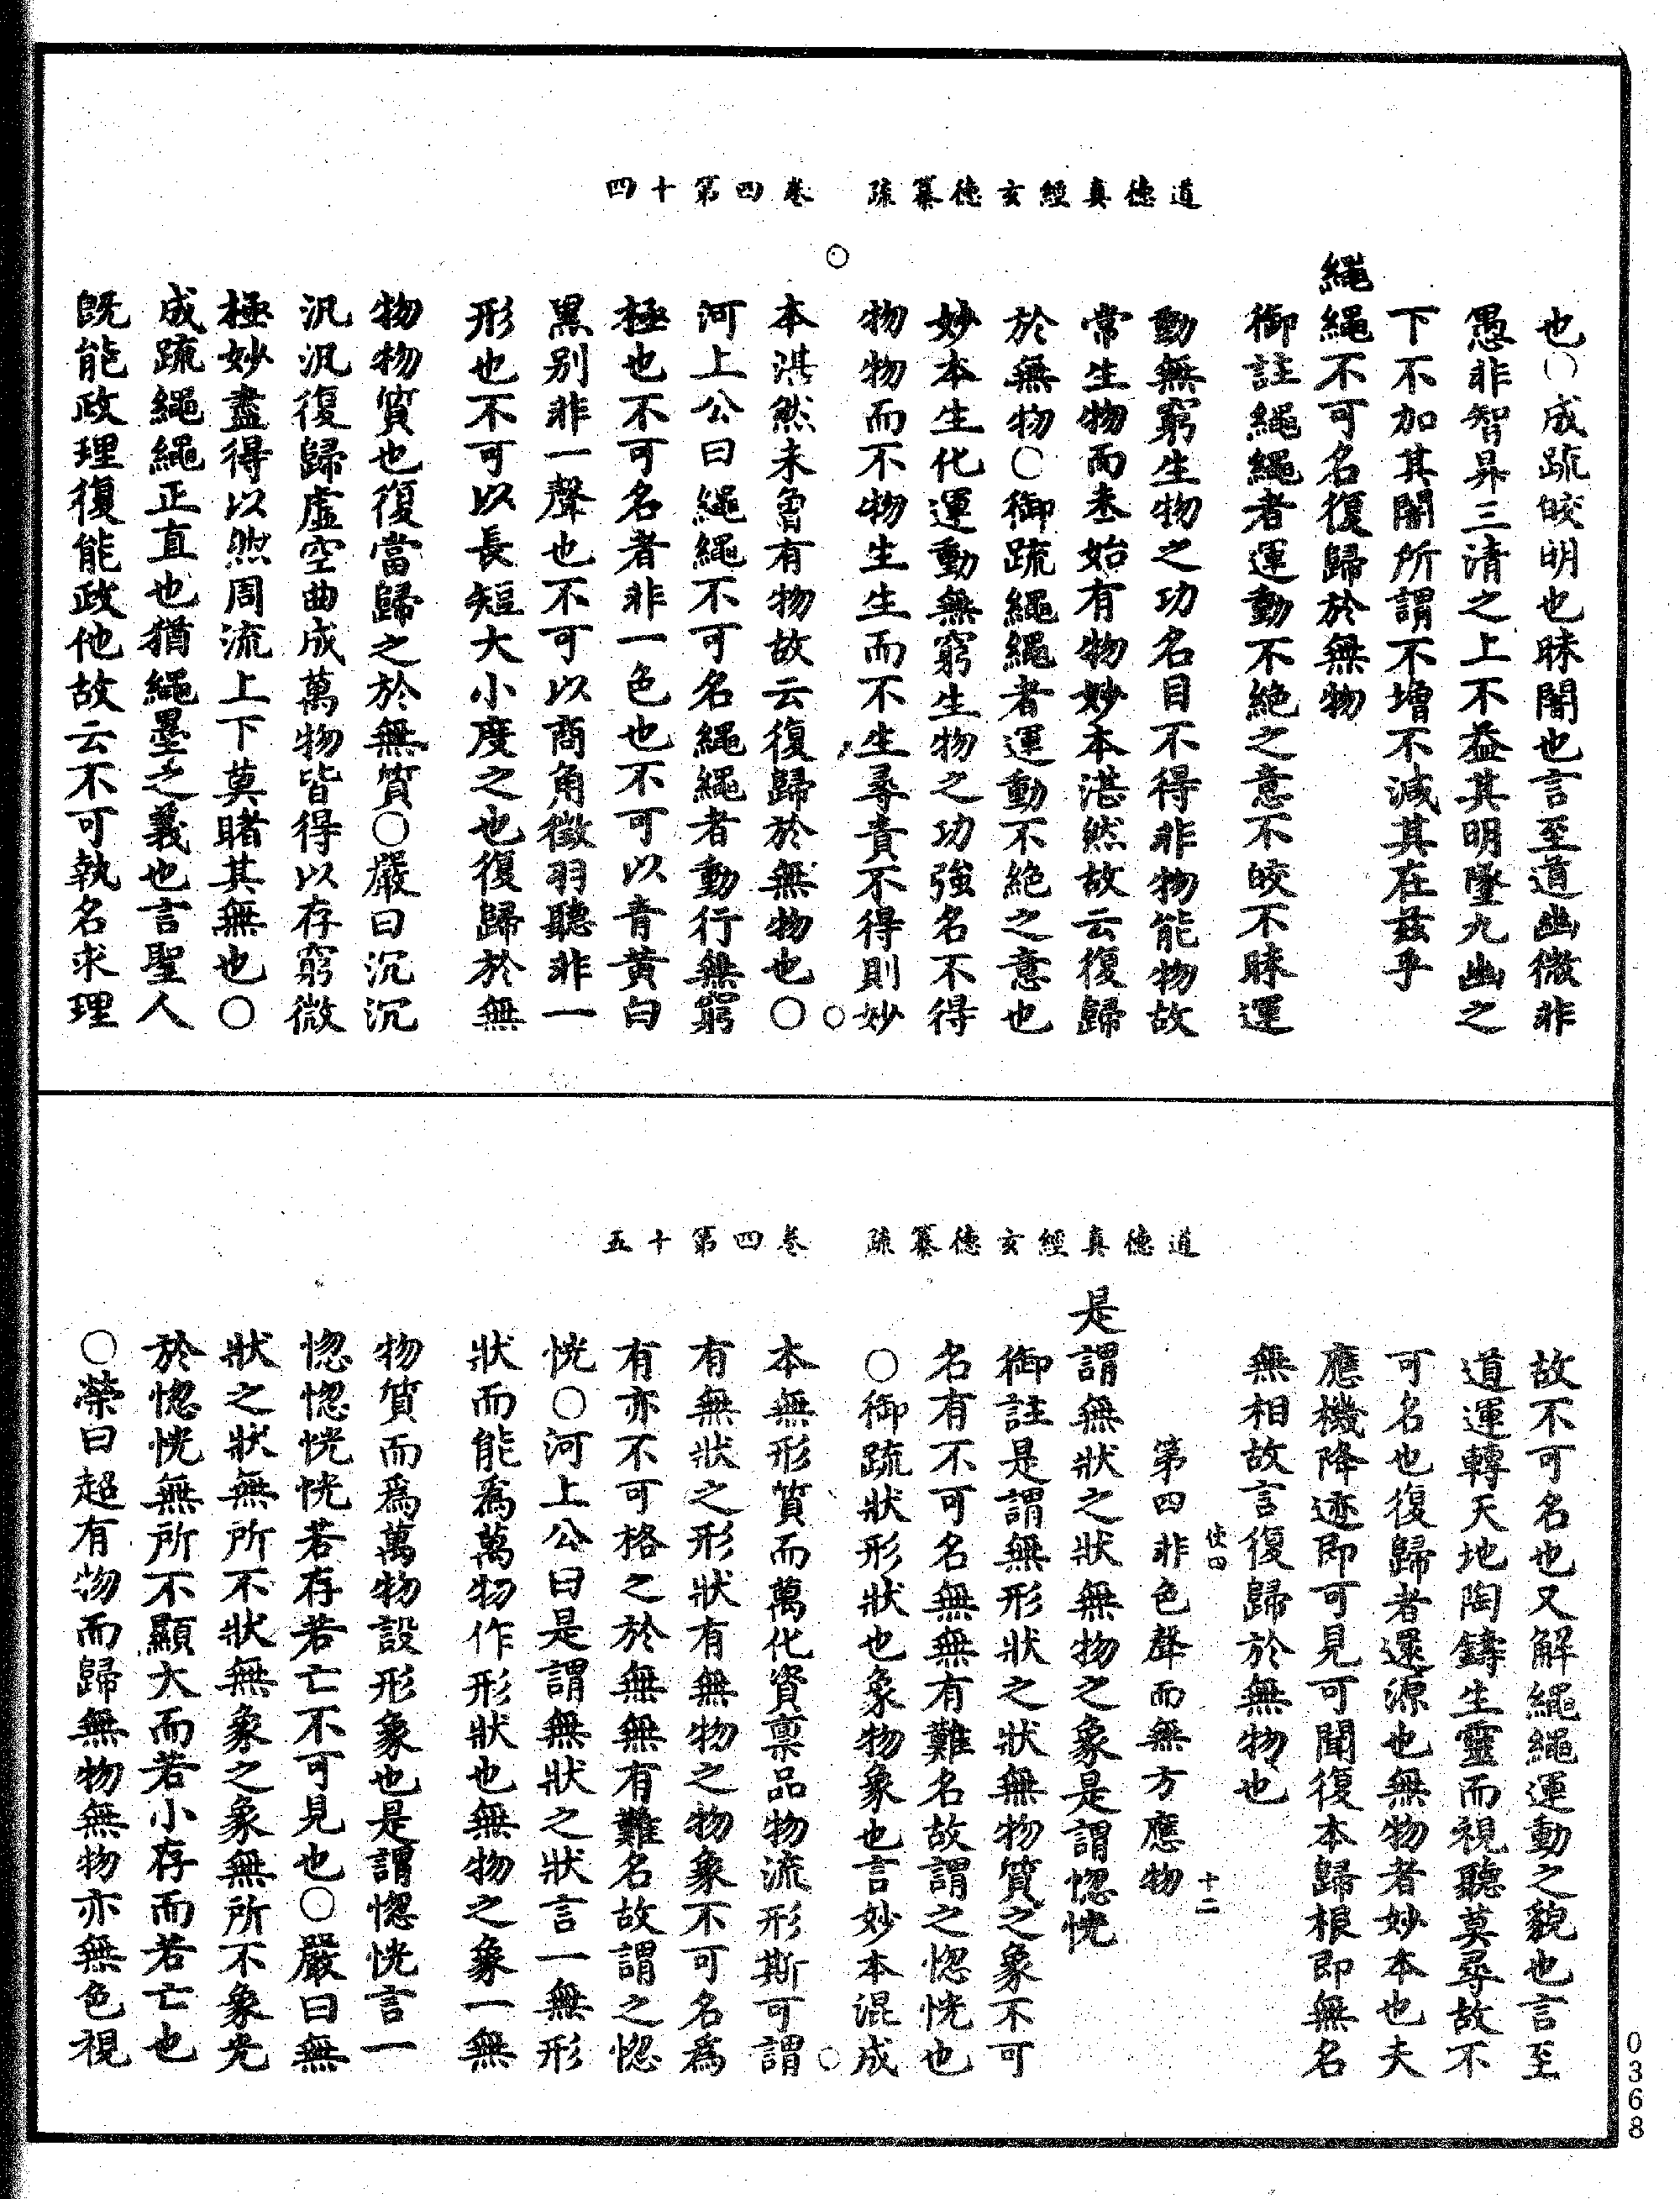 道德真經玄德纂疏　卷四第十四
也○成疏皎明也昧闇也言至道幽微非
愚非智昇三清之上不益其明墜九幽之
下不加其闇所謂不增不減其在茲乎
繩繩不可名復歸於無物
御註繩繩者運動不絕之意不皎不昧運
動無窮生物之功名目不得非物能物故
常生物而未始有物妙本湛然故云復歸
於無物○御疏繩繩者運動不絕之意也
妙本生化運動無窮生物之功強名不得
物物而不物生生而不生尋責不得則妙
本湛然未曾有物故云復歸於無物也○
河上公曰繩繩不可名繩繩者動行無窮
極也不可名者非一色也不可以青黃白
黑別非一聲也不可以商角徵羽聽非一
形也不可以長短大小度之也復歸於無
物物質也復當歸之於無質○嚴曰沉沉
汎汎復歸虛空曲成萬物皆得以存窮微
極妙盡得以然周流上下莫睹其無也○
成疏繩繩正直也猶繩墨之義也言聖人
既能政理復能政他故云不可執名求理
道德真經玄德纂疏　卷四第十五
故不可名也又解繩繩運動之貌也言至
道運轉天地陶鑄生靈而視聽莫尋故不
可名也復歸者還源也無物者妙本也夫
應機降迹即可見可聞復本歸根即無名
無相故言復歸於無物也
使四　十二
第四非色聲而無方應物
是謂無狀之狀無物之象是謂惚恍
御註是謂無形狀之狀無物質之象不可
名有不可名無無有難名故謂之惚恍也
○御疏狀形狀也象物象也言妙本混成
本無形質而萬化資稟品物流形斯可謂
有無狀之形狀有無物之物象不可名為
有亦不可格之於無無有難名故謂之惚
恍○河上公曰是謂無狀之狀言一無形
狀而能為萬物作形狀也無物之象一無
物質而為萬物設形象也是謂惚恍言一
惚惚恍恍若存若亡不可見也○嚴曰無
狀之狀無所不狀無象之象無所不象光
於惚恍無所不顯大而若小存而若亡也
○榮曰超有物而歸無物無物亦無色視
0368